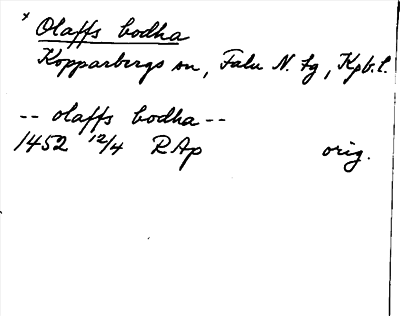 * Olaffs bodha
Kopparbergs sn, Falu N. tg, Kpb. l.
-- olaffs bodha --
1452 12/4 RAp orig.